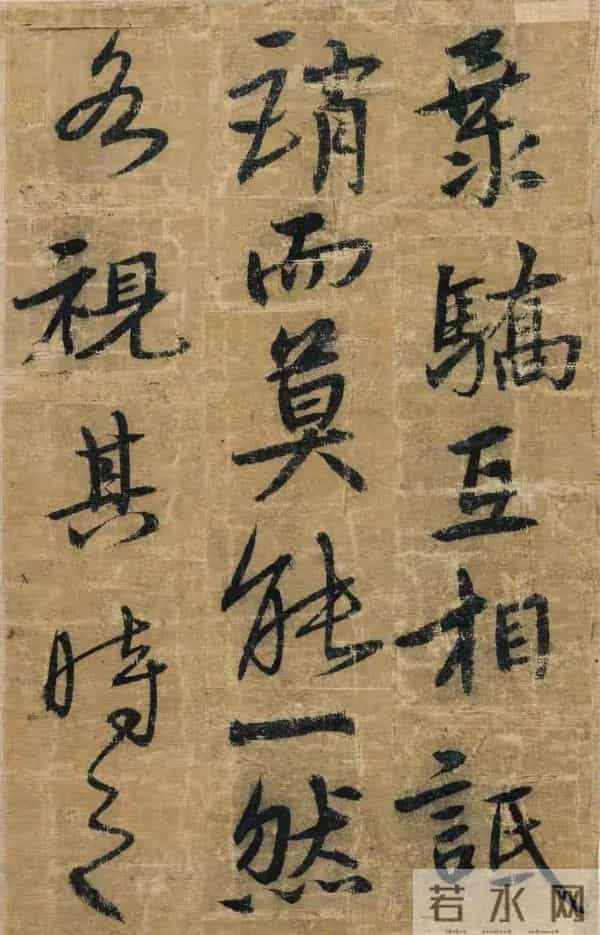 業驕互相詆
誚而莫能一然
各視其時之
若水网